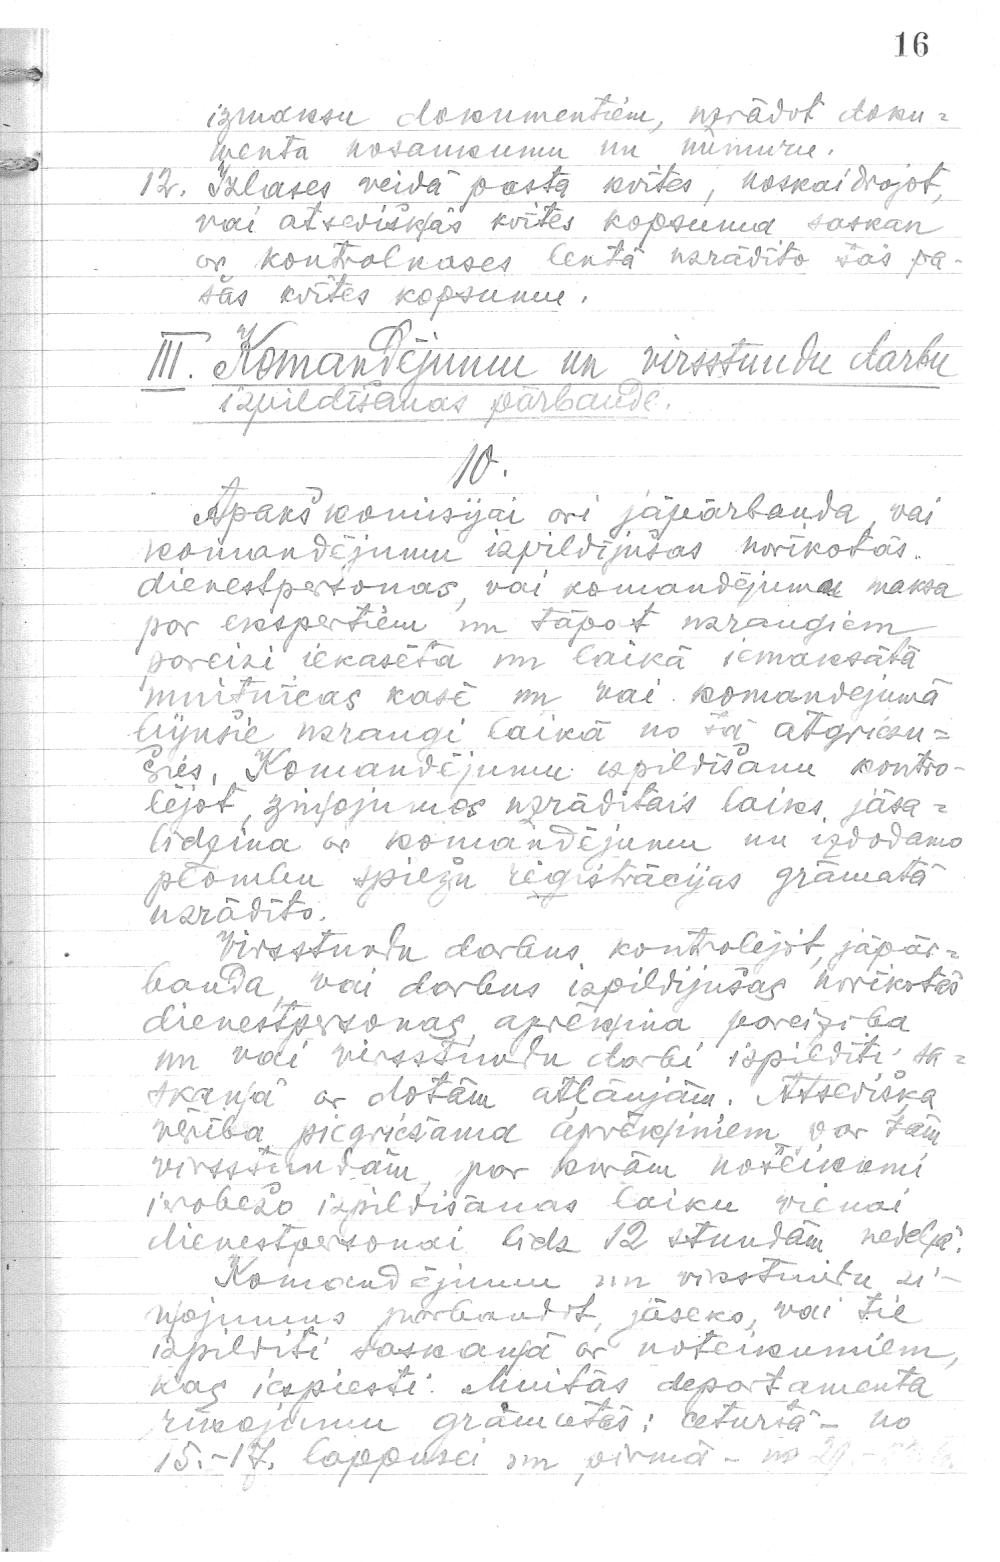 16
izmaksu dokumentiem, uzrādot doku=
menta nosaukumu un numuru.
12. Izlases veidā pasta kvītes, noskaidrojot,
vai atsevišķās kvītes kopsumma saskan
ar kontrolkases lentā uzrādīto šās pa-
šas kvītes kopsummu.
III. Komandējumu un virsstundu darbu
izpildīšanas pārbaude.
10.
Apakškomisijai arī jāpārbauda, vai
komandējumu izpildījušas norīkotās
dienestpersonas, vai komandējuma maksa
par ekspertiem un tāpat uzraugiem
pareizi iekasēta un laikā iemaksāta
muitnīcas kasē un vai komandējumā
bijušie uzraugi laikā no tā atgriezu=
šies. Komandējumu izpildīšanu kontro-
lējot, ziņojumos uzrādītais laiks jāsa=
līdzina ar komandējumu un izdodamo
plombu spiežu reģistrācijas grāmatā
uzrādīto.
Virsstundu darbus kontrolējot, jāpār=
bauda, vai darbus izpildījušas norīkotās
dienestpersonas, aprēķina pareizība
un vai virsstundu darbi izpildīti sa=
skaņā ar dotām atļaujām. Atsevišķa
vērība piegriežama aprēķiniem par tām
virsstundām, par kurām noteikumi
ierobežo izpildīšanas laiku vienai
dienestpersonai līdz 12 stundām nedēļā.
Komandējumu un virsstundu zi-
ņojumus pārbaudot, jāseko, vai tie
izpildīti saskaņā ar noteikumiem,
kas iespiesti Muitas departamenta
rīkojumu grāmatās: ceturtā - no
15.-17. lappusei un pirmā - no 29.-